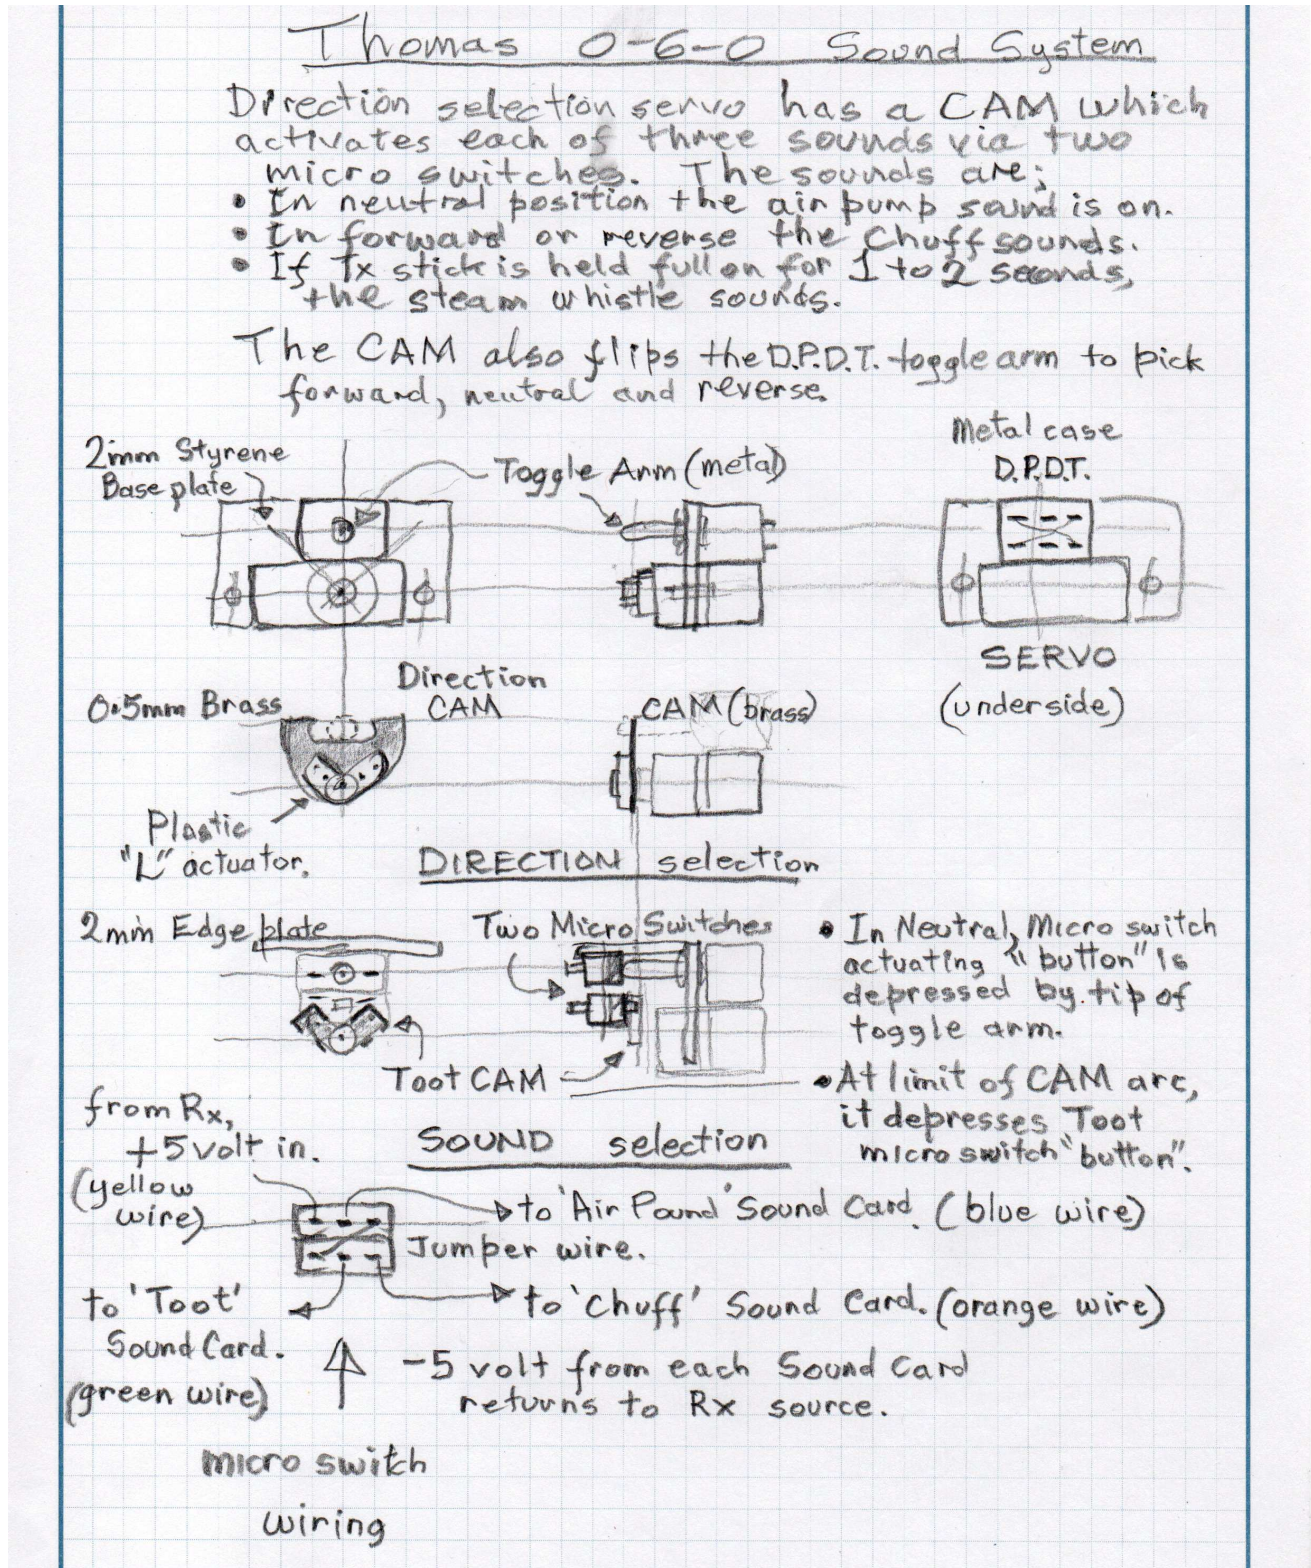 Thomas 0-6-0 Sound System
Direction selection servo has a CAM which
activates each of three sounds via two
micro switches. The sounds are;
• In neutral position the air pump sound is on.
• In forward or reverse the Chuff sounds.
• If Tx stick is held full on for 1 to 2 seconds,
the steam whistle sounds.
The CAM also flips the D.P.D.T. toggle arm to pick
forward, neutral and reverse.
2mm Styrene
Base plate
Toggle Arm (metal)
Metal case
D.P.D.T.
SERVO
(underside)
0.5mm Brass
Direction
CAM
CAM (brass)
Plastic
"L" actuator.
DIRECTION selection
2mm Edge plate
Two Micro Switches
• In Neutral, Micro switch
actuating "button" is
depressed by tip of
toggle arm.
Toot CAM
• At limit of CAM arc,
it depresses Toot
micro switch "button".
SOUND selection
from Rx,
+5 volt in.
(yellow
wire)
to 'Air Pound' Sound Card. (blue wire)
Jumper wire.
to 'Toot'
Sound Card.
(green wire)
to 'Chuff' Sound Card. (orange wire)
-5 volt from each Sound Card
returns to Rx source.
micro switch
wiring